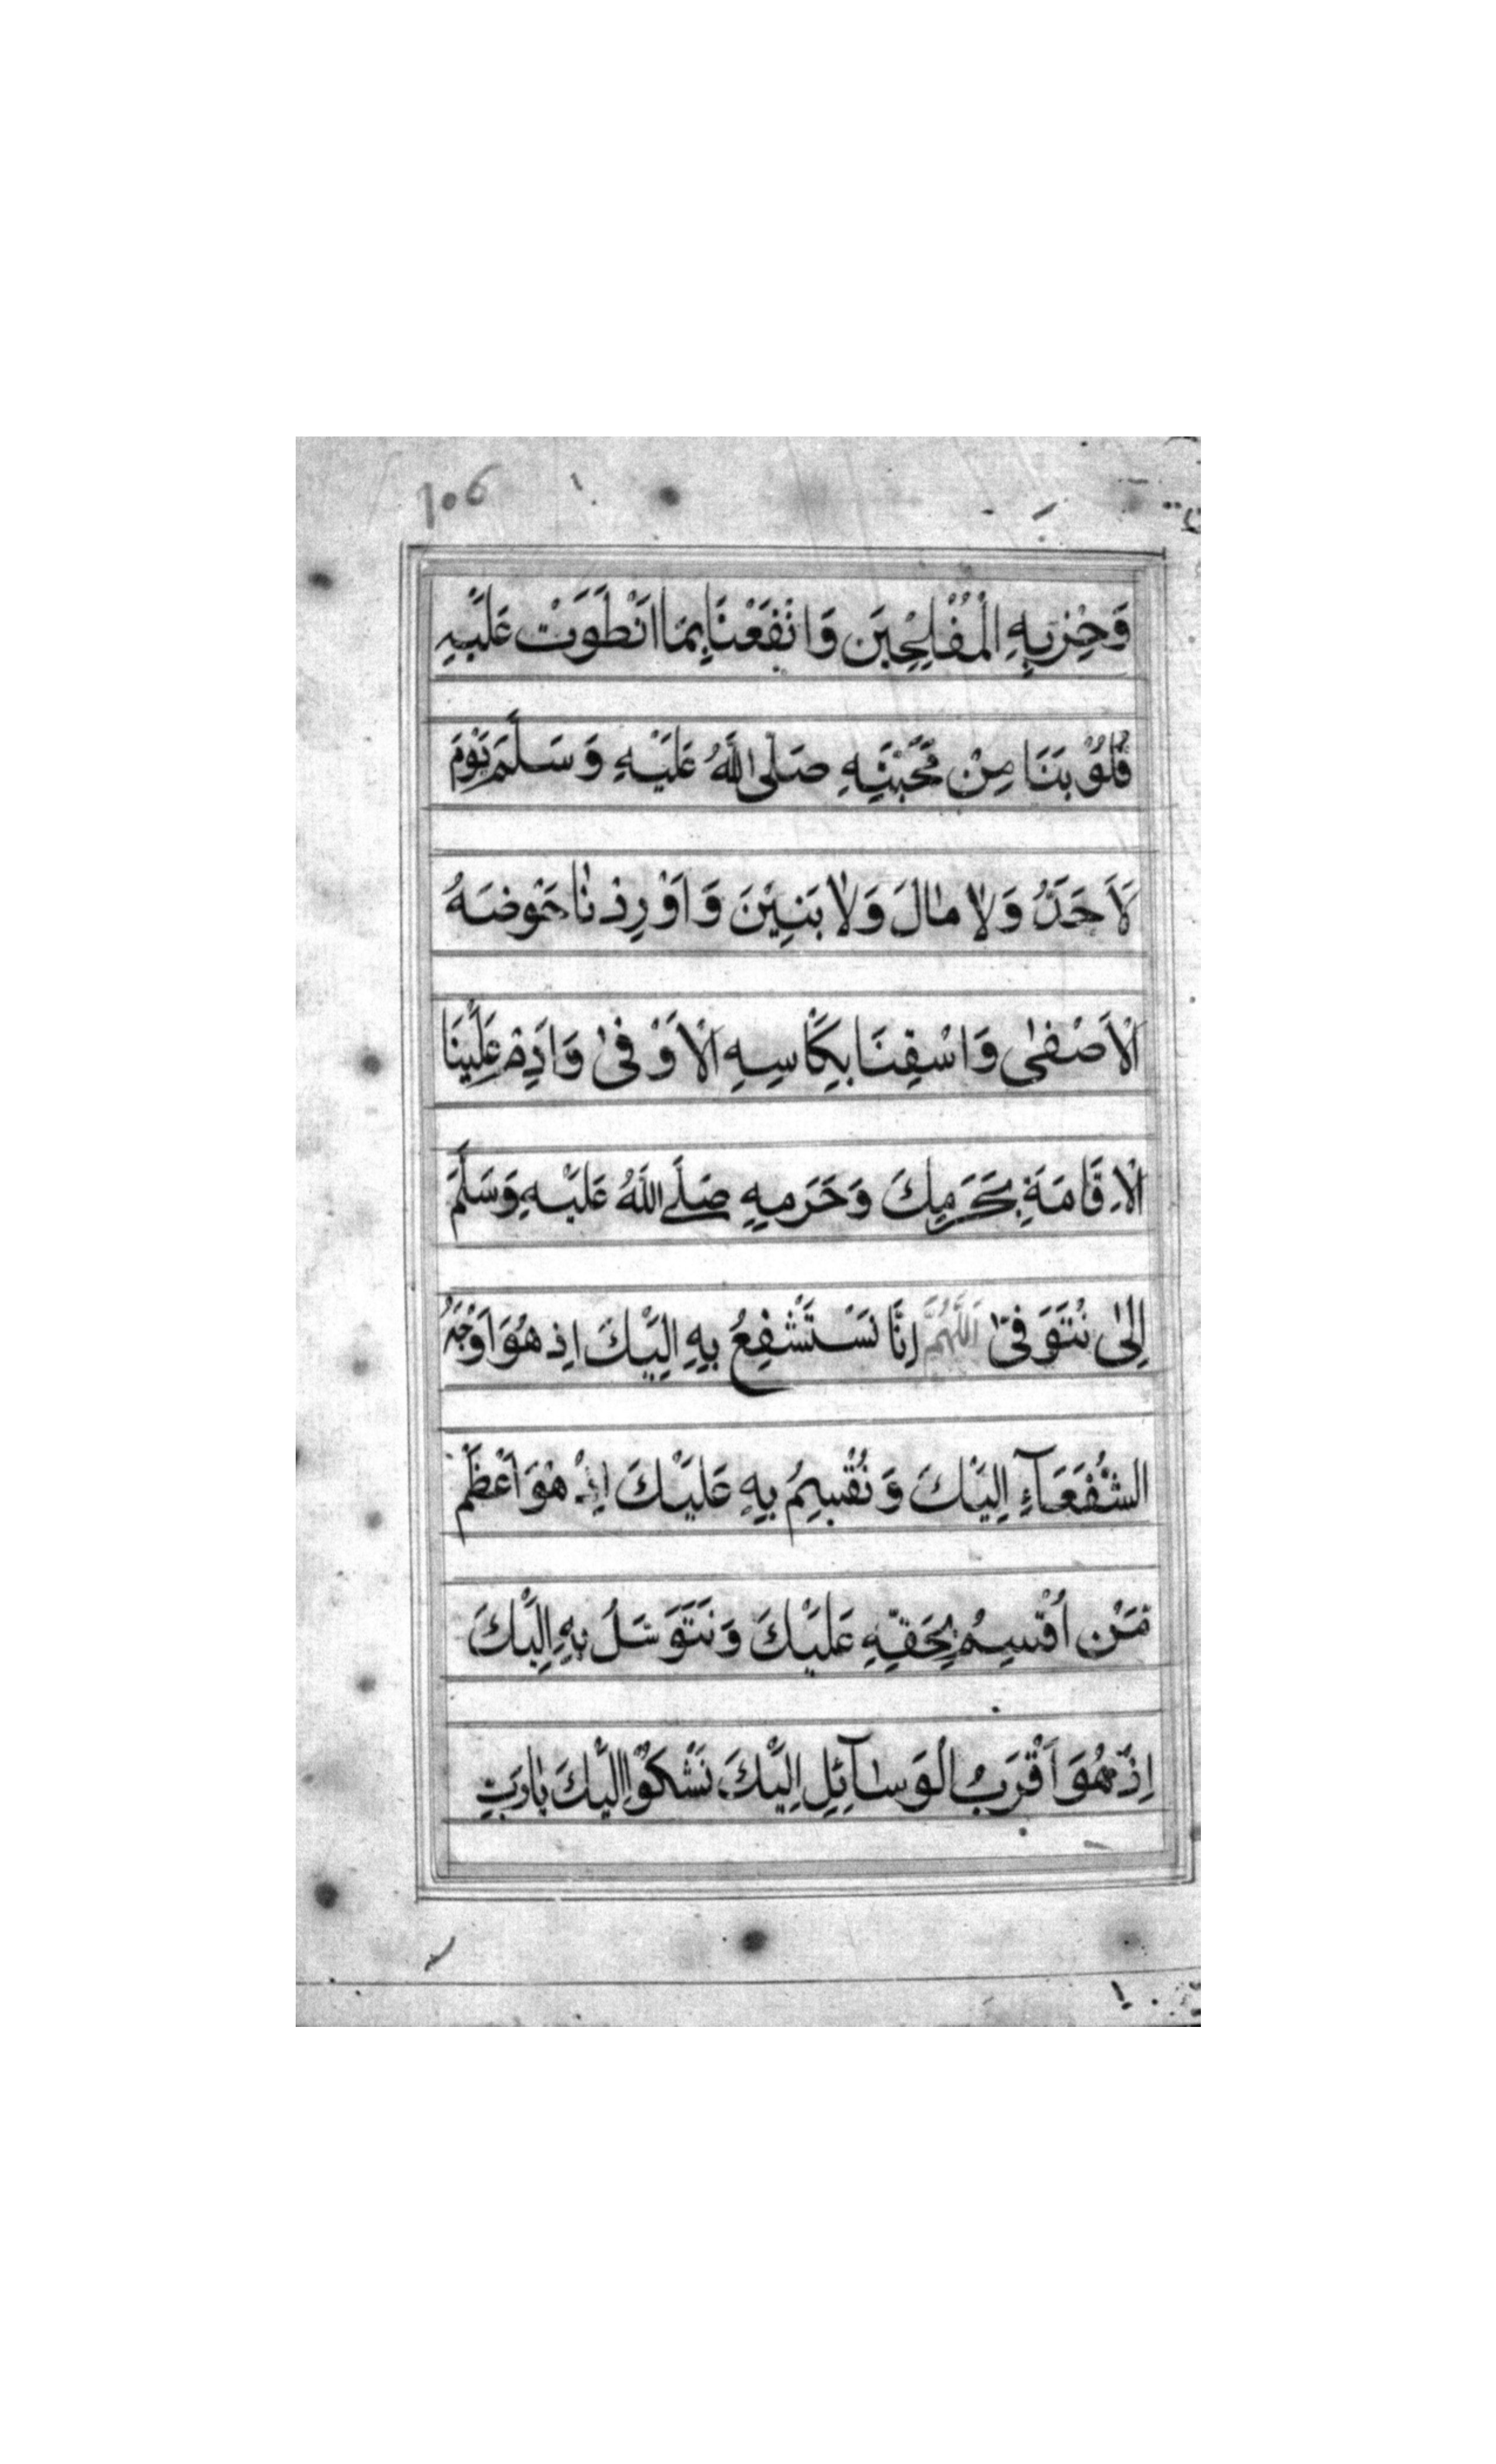 106
وَحِزْبِهِ الْمُفْلِحِينَ وَانْفَعْنَا بِمَا انْطَوَتْ عَلَيْهِ
قُلُوْبَنَا مِنْ مَحَبَّتِهِ صَلَى اللّٰهُ عَلَيْهِ وَسَلَّمَ يَوْمَ
لَاجَدَّ وَلَا مَالَ وَلَا بَنِيْنَ وَاَوْرِدْنَا حَوْضَهُ
الْاَصْفٰى وَاسْقِنَا بِكَاْسِهِ الْاَوْفٰى وَادِمْ عَلَيْنَا
الْاِقَامَةِ بِحَرَمِكَ وَحَرَمِهِ صَلَّى اللّٰهُ عَلَيْهِ وَسَلَّمَ
اِلٰى نُتَوَفّٰى اَللّٰهُمَّ اِنَّا نَسْتَشْفِعُ بِهِ اِلَيْكَ اِذْ هُوَ اَوْجَهُ
الشُّفَعَآءِ اِلَيْكَ وَنُقْسِمُ بِهِ عَلَيْكَ اِذْ هُوَ اَعْظَمُ
مَنْ اُقْسِمُ بِحَقِّهِ عَلَيْكَ وَنَتَوَسَّلُ بِهِ اِلَيْكَ
اِذْ هُوَ اَقْرَبُ الْوَسَآئِلِ اِلَيْكَ نَشْكُوْا اِلَيْكَ يَارَبِّ